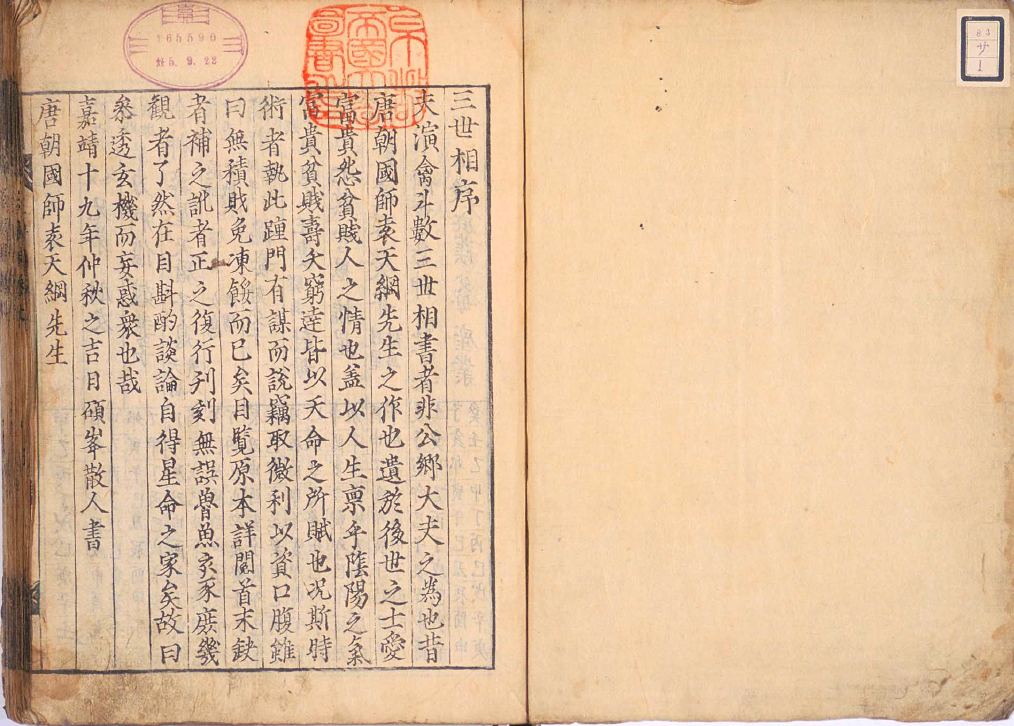 三世相序
夫演禽斗數三世相書者非公鄉大夫之為也昔
唐朝國師袁天綱先生之作也遺於後世之士愛
富貴怨貧賎人之情也盖以人生禀乎陰陽之氣
富貴貧賎壽夭窮達皆以天命之所賦也况斯時
術者執此踵門有謀而說竊取微利以資口腹雖
曰無積財免凍餒而已矣目覧原本詳閱首末缺
者補之訛者正之復行刋刻無誤魯魚亥豕庻幾
觀者了然在目斟酌談論自得星命之家矣故曰
叅透玄機而妄惑衆也哉
嘉靖十九年仲秋之吉日碩峯散人書
唐朝國師袁天綱先生
165590
昭5.9.22
京都
帝國大學
圖書之印
83
サ
1